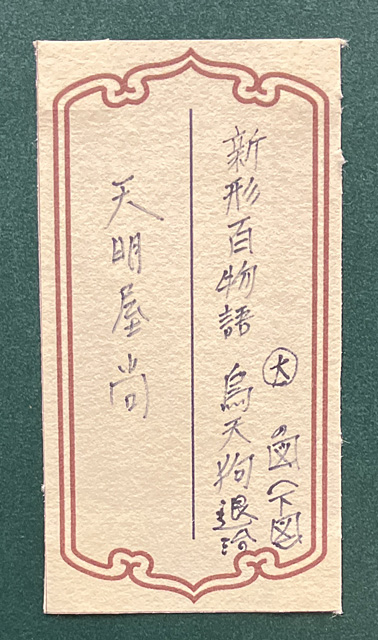 新形百物語 烏天狗退治
大
の図(下図
天明屋尚